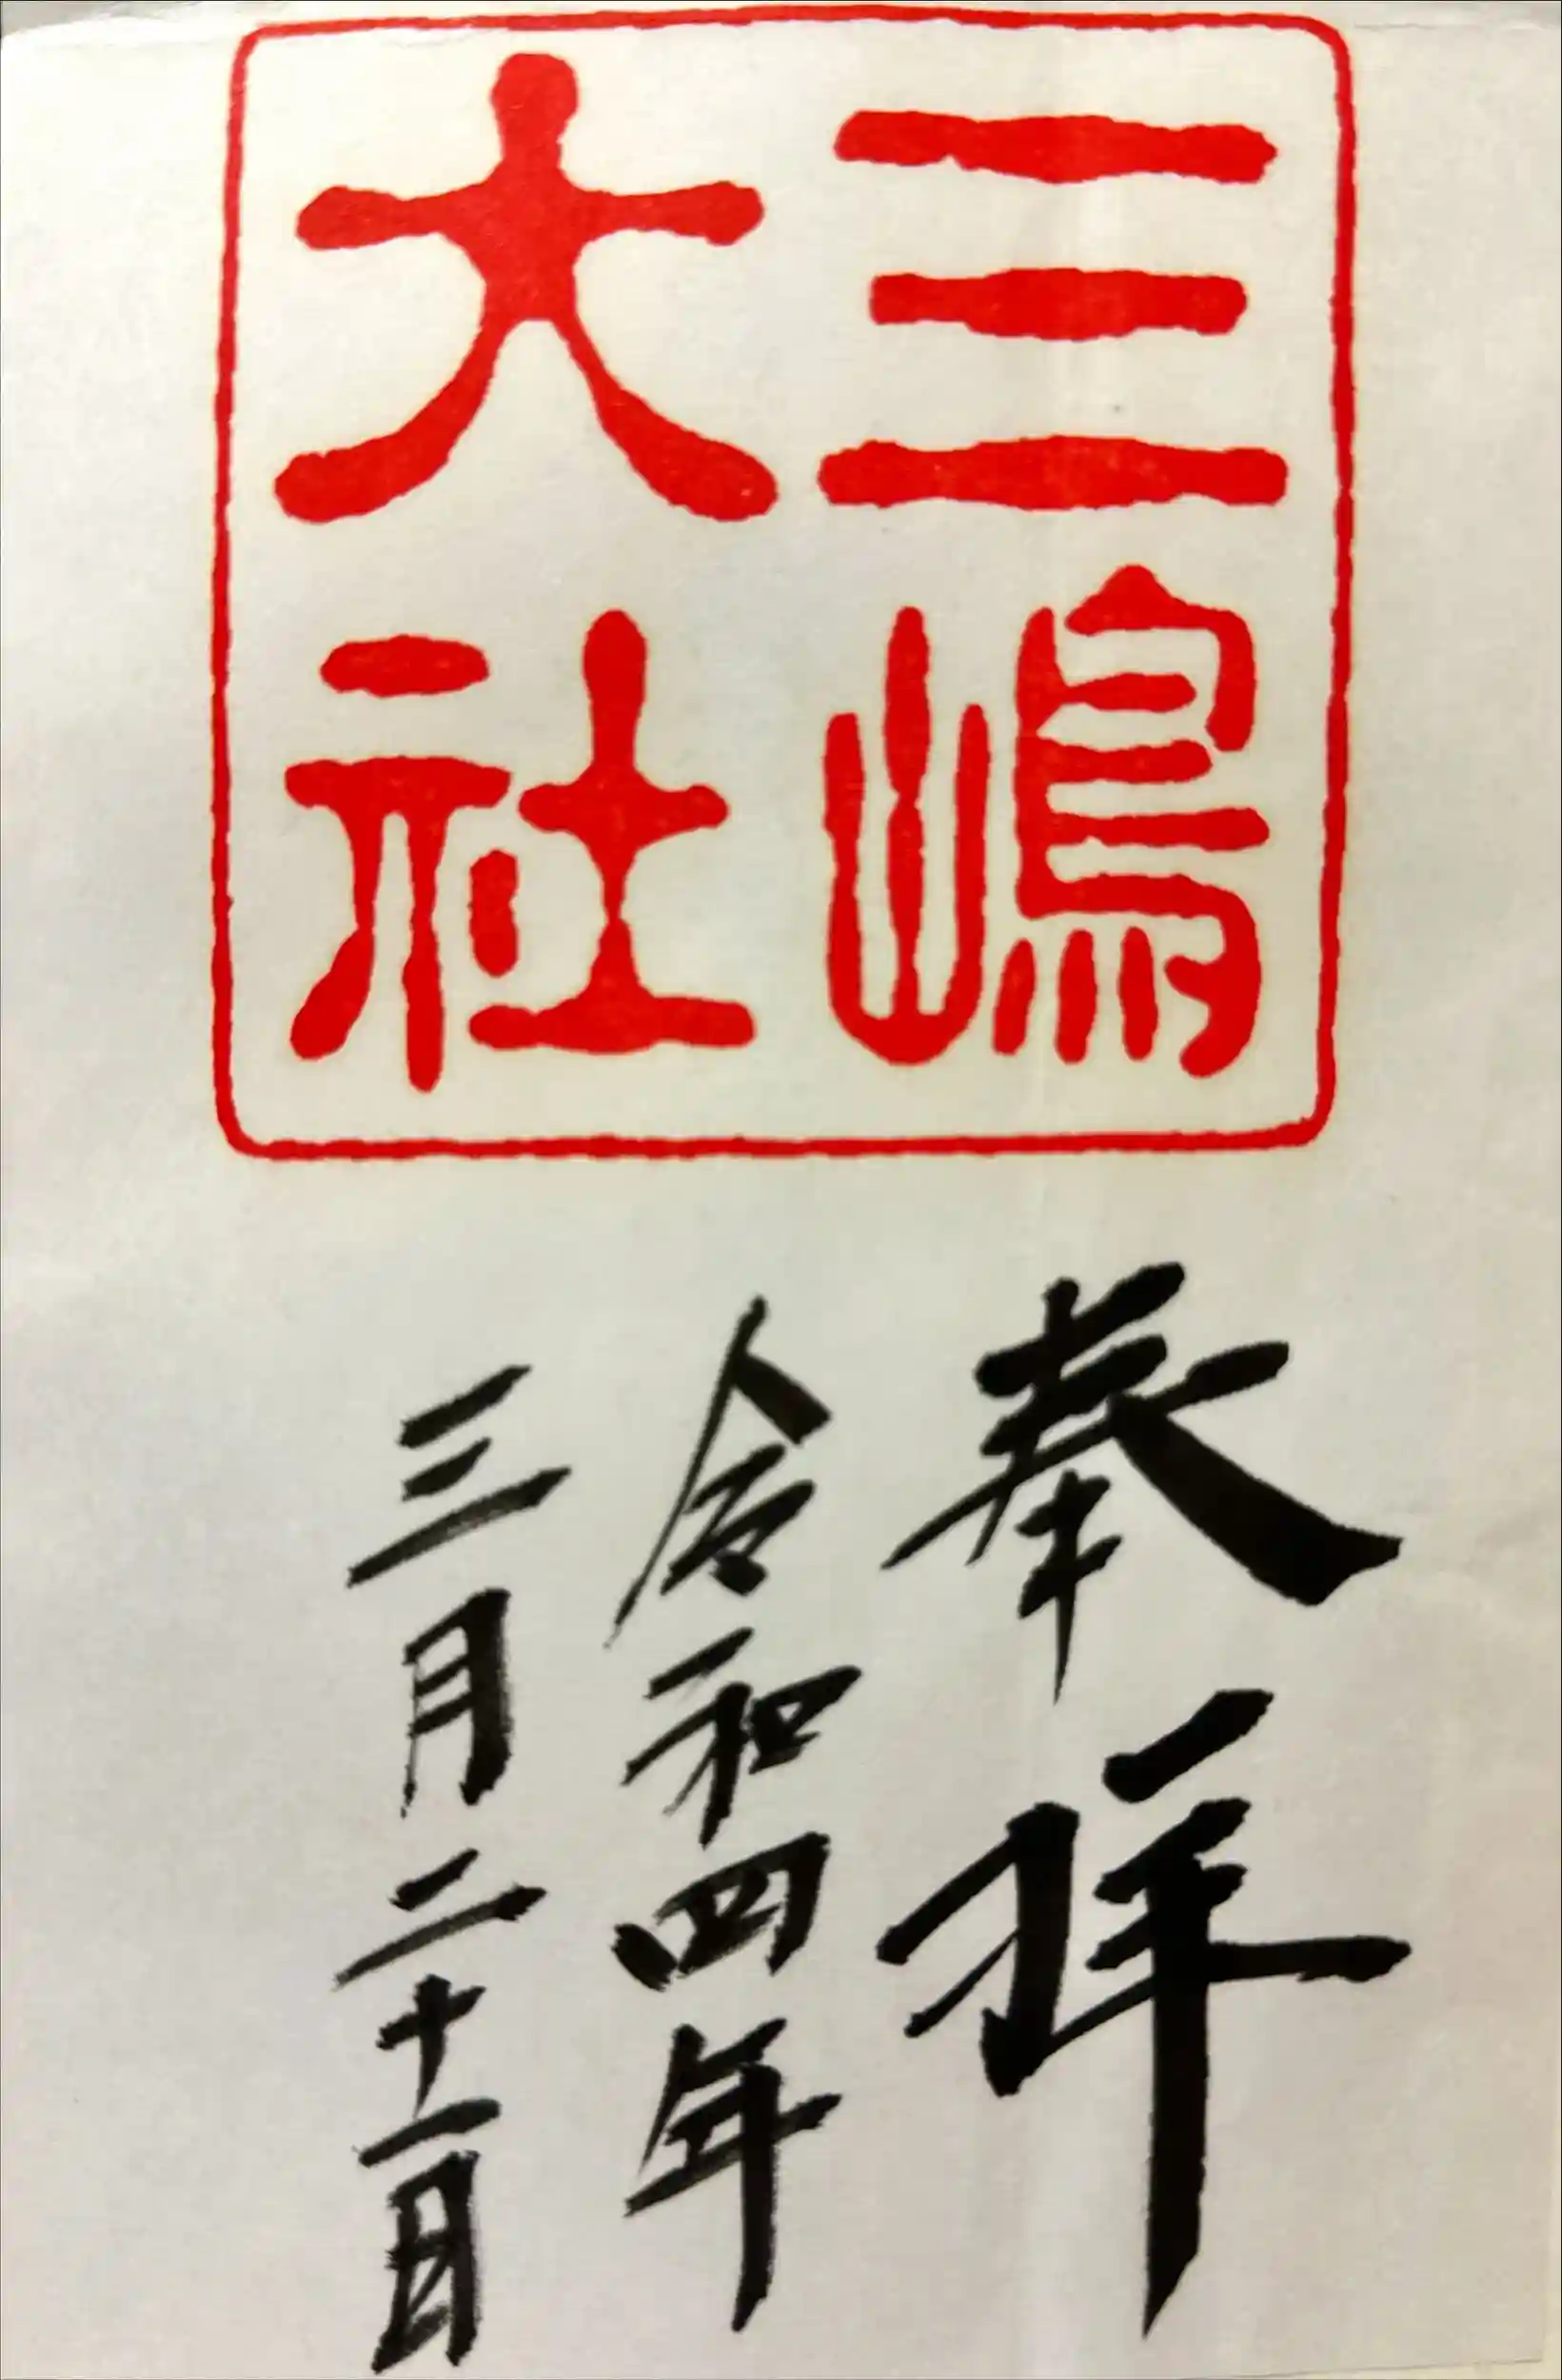 三嶋
大社
奉拝
令和四年
三月二十一日